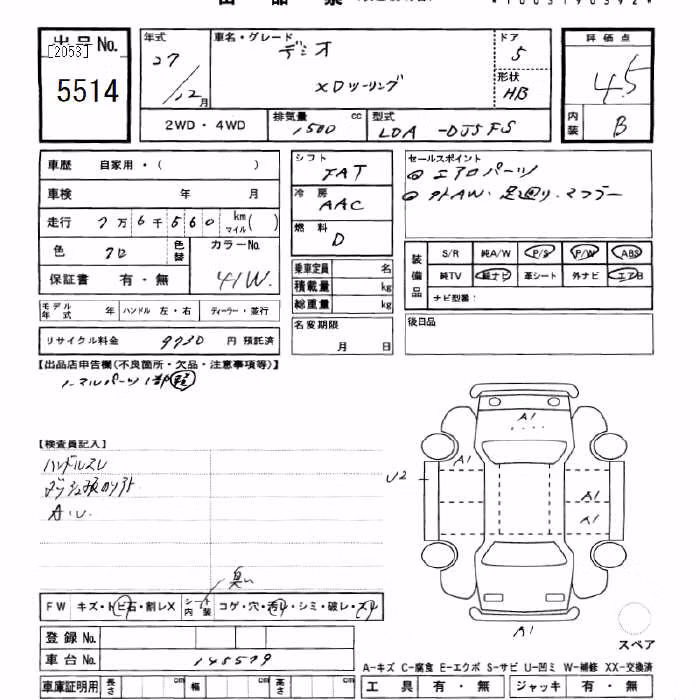 出品票
*1005190392*
出品 No.
[2053]
5514
年式 27/12月
車名・グレード デミオ
XDツーリング
ドア 5
形状 HB
評価点 4.5
内装 B
2WD・4WD
排気量 1500 cc
型式 LDA-DJ5FS
車歴 自家用・( )
車検 年 月
走行 7万6千560 km マイル( )
色 クロ 色替 カラーNo. 41W
保証書 有・無
モデル年式 年 ハンドル 左・右 ディーラー・並行
リサイクル料金 9730 円 預託済
シフト FAT
冷房 AAC
燃料 D
乗車定員 名
積載量 kg
総重量 kg
名変期限 月 日
セールスポイント
◎エアロパーツ
◎外AW・足廻り・マフラー
装備品
S/R 純A/W P/S P/W ABS
純TV 純ナビ 革シート 外ナビ エアB
ナビ型番：
後日品
【出品店申告欄(不良箇所・欠品・注意事項等)】
ノーマルパーツ1部
【検査員記入】
ハンドルスレ
A・U
A1
A1
U2
A1
A1
A1
スペア
臭い
FW キズ・トビ石・割レX シート内装 コゲ・穴・汚レ・シミ・破レ・スレ
登録 No.
車台 No. 145579
車庫証明用 長さ cm 幅 cm 高さ cm
A-キズ C-腐食 E-エクボ S-サビ U-凹ミ W-補修 XX-交換済
工具 有・無 ジャッキ 有・無